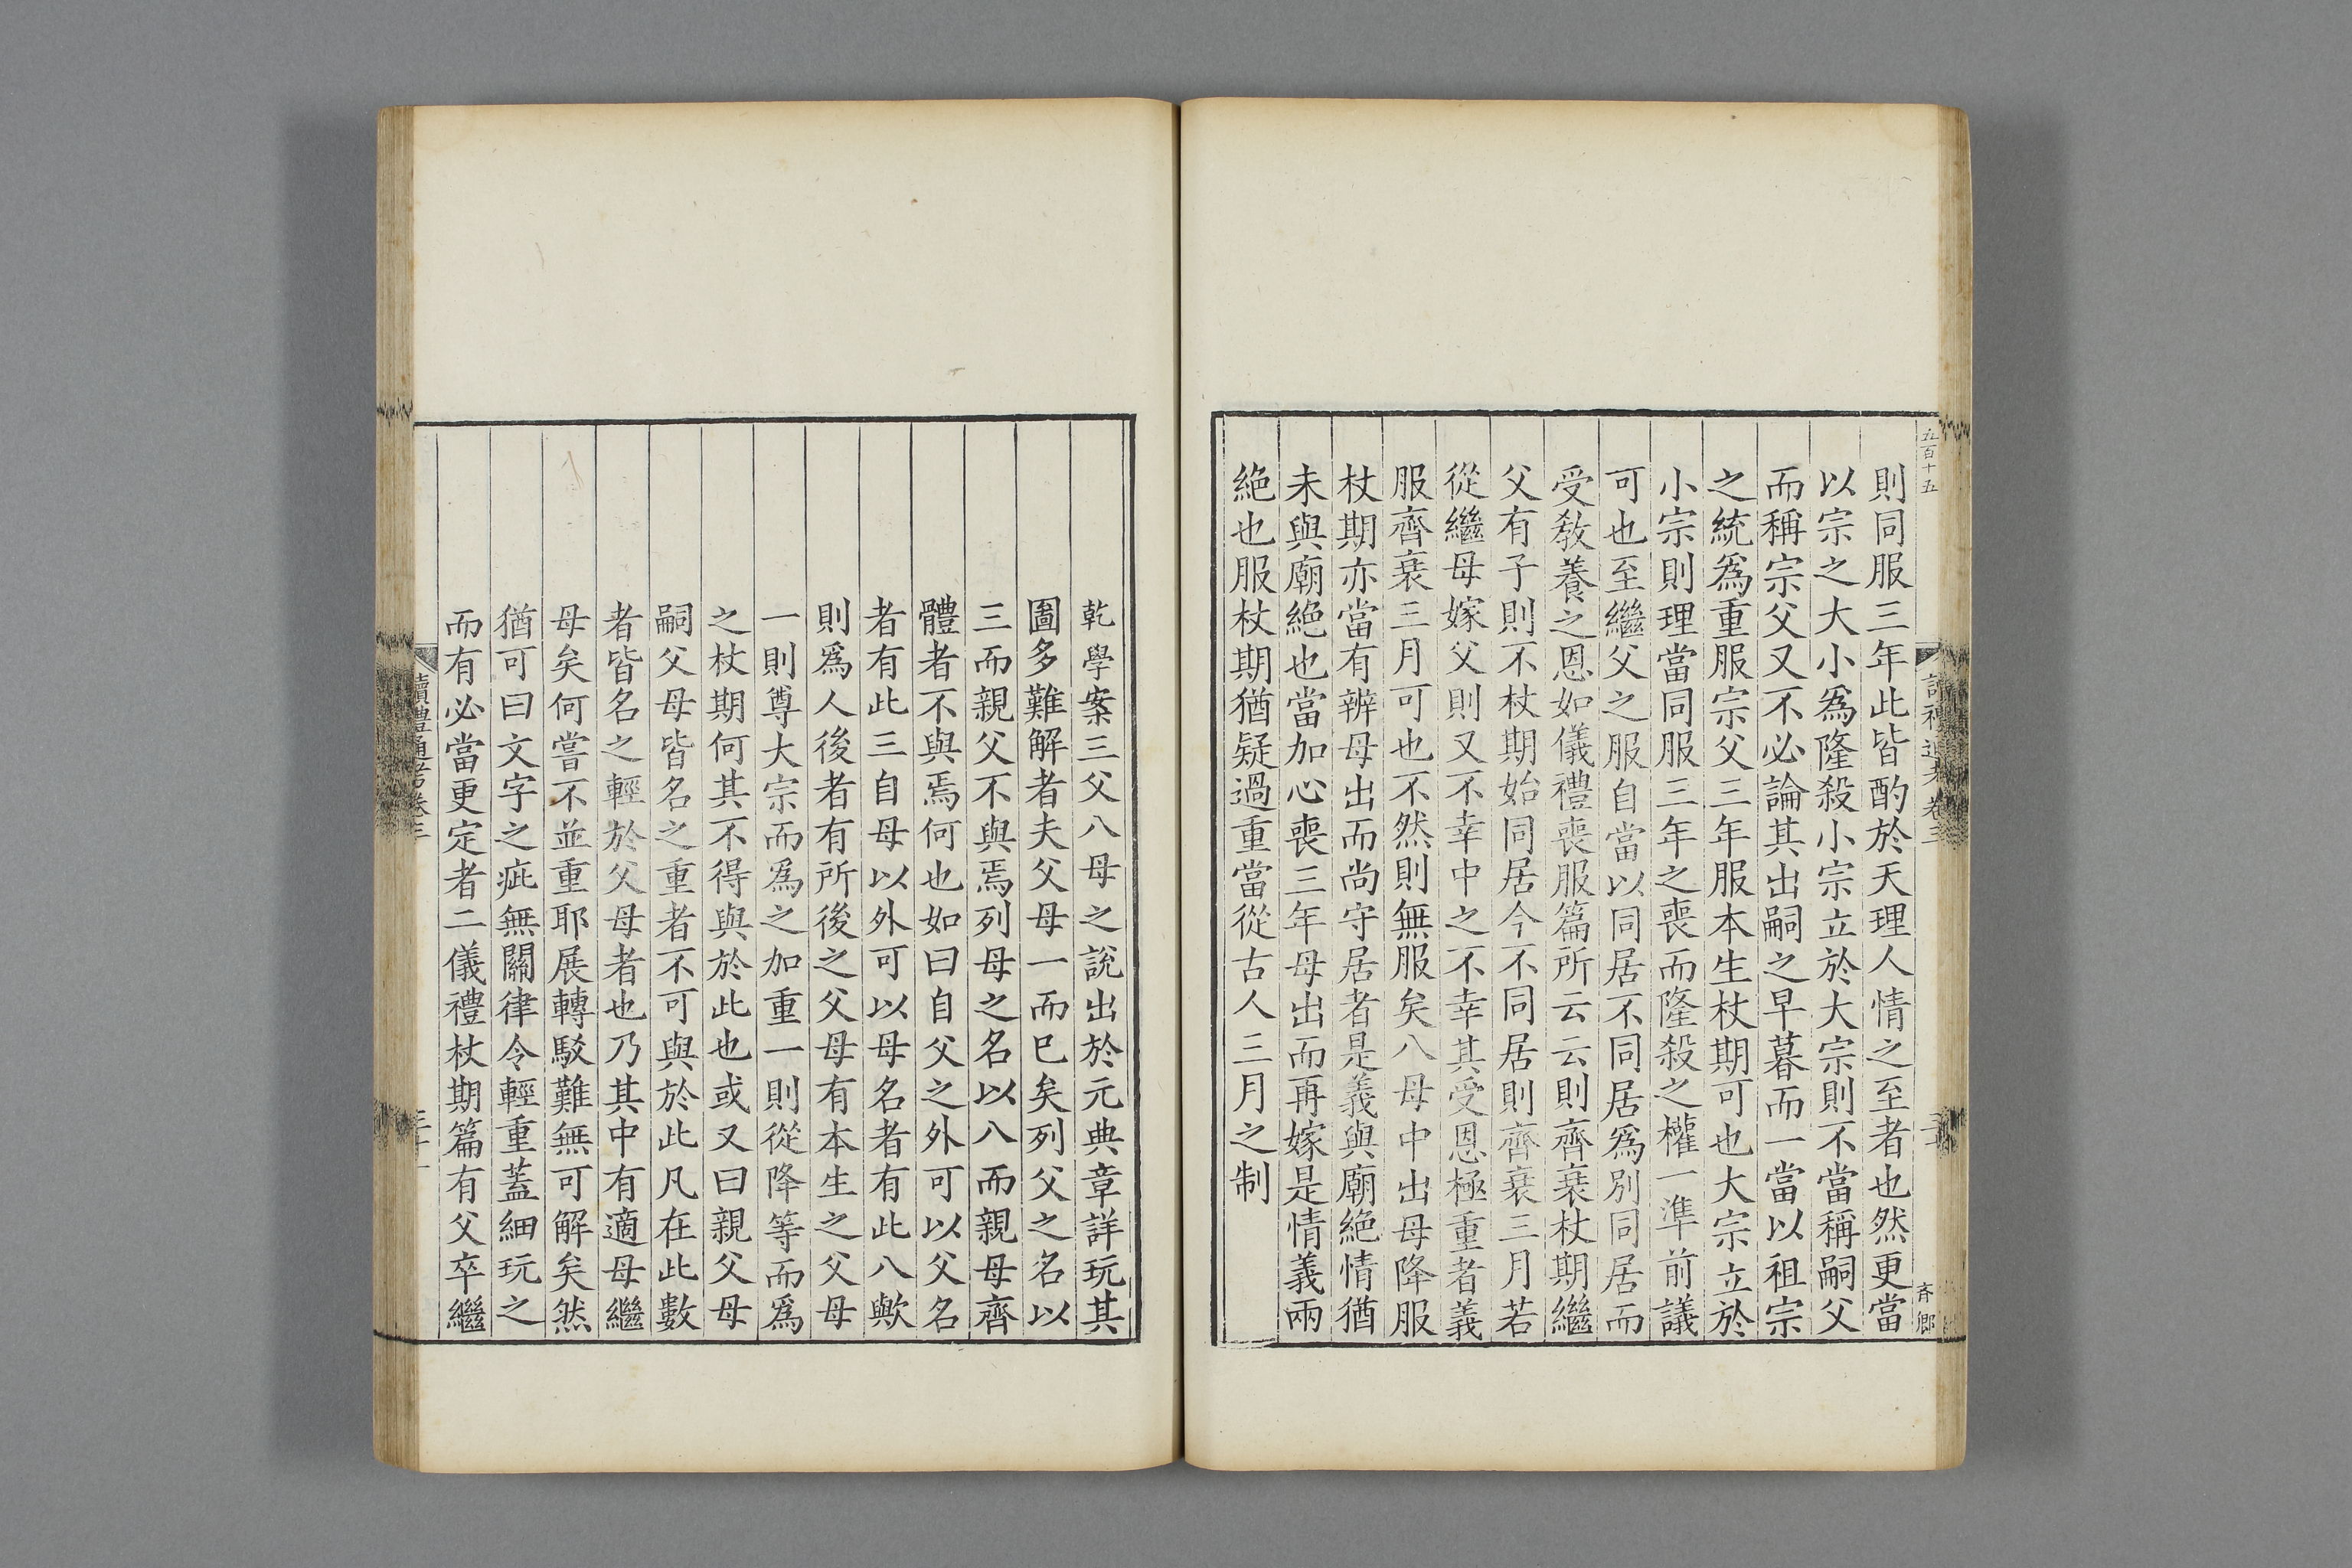 五百十五
齊卿
則同服三年此皆酌於天理人情之至者也然更當
以宗之大小爲隆殺小宗立於大宗則不當稱嗣父
而稱宗父又不必論其出嗣之早暮而一當以祖宗
之統爲重服宗父三年服本生杖期可也大宗立於
小宗則理當同服三年之喪而隆殺之權一準前議
可也至繼父之服自當以同居不同居爲別同居而
受敎養之恩如儀禮喪服篇所云云則齊衰杖期繼
父有子則不杖期始同居今不同居則齊衰三月若
從繼母嫁父則又不幸中之不幸其受恩極重者義
服齊衰三月可也不然則無服矣八母中出母降服
杖期亦當有辨母出而尚守居者是義與廟絕情猶
未與廟絕也當加心喪三年母出而再嫁是情義兩
絕也服杖期猶疑過重當從古人三月之制
乾學案三父八母之說出於元典章詳玩其
圖多難解者夫父母一而已矣列父之名以
三而親父不與焉列母之名以八而親母齊
體者不與焉何也如曰自父之外可以父名
者有此三自母以外可以母名者有此八歟
則爲人後者有所後之父母有本生之父母
一則尊大宗而爲之加重一則從降等而爲
之杖期何其不得與於此也或又曰親父母
嗣父母皆名之重者不可與於此凡在此數
者皆名之輕於父母者也乃其中有適母繼
母矣何嘗不並重耶展轉駁難無可解矣然
猶可曰文字之疵無關律令輕重蓋細玩之
而有必當更定者二儀禮杖期篇有父卒繼
讀禮通考卷三